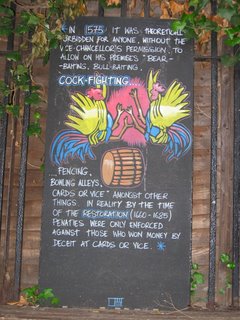 IN 1575 IT WAS THEORETICALLY
FORBIDDEN FOR ANYONE, WITHOUT THE
VICE-CHANCELLOR'S PERMISSION, TO
ALLOW ON HIS PREMISES "BEAR-
-BAITING, BULL-BAITING,
COCK-FIGHTING...
...FENCING,
BOWLING ALLEYS,
CARDS OR VICE" AMONGST OTHER
THINGS. IN REALITY BY THE TIME
OF THE RESTORATION (1660-1685)
PENATIES WERE ONLY ENFORCED
AGAINST THOSE WHO WON MONEY BY
DECEIT AT CARDS OR VICE.